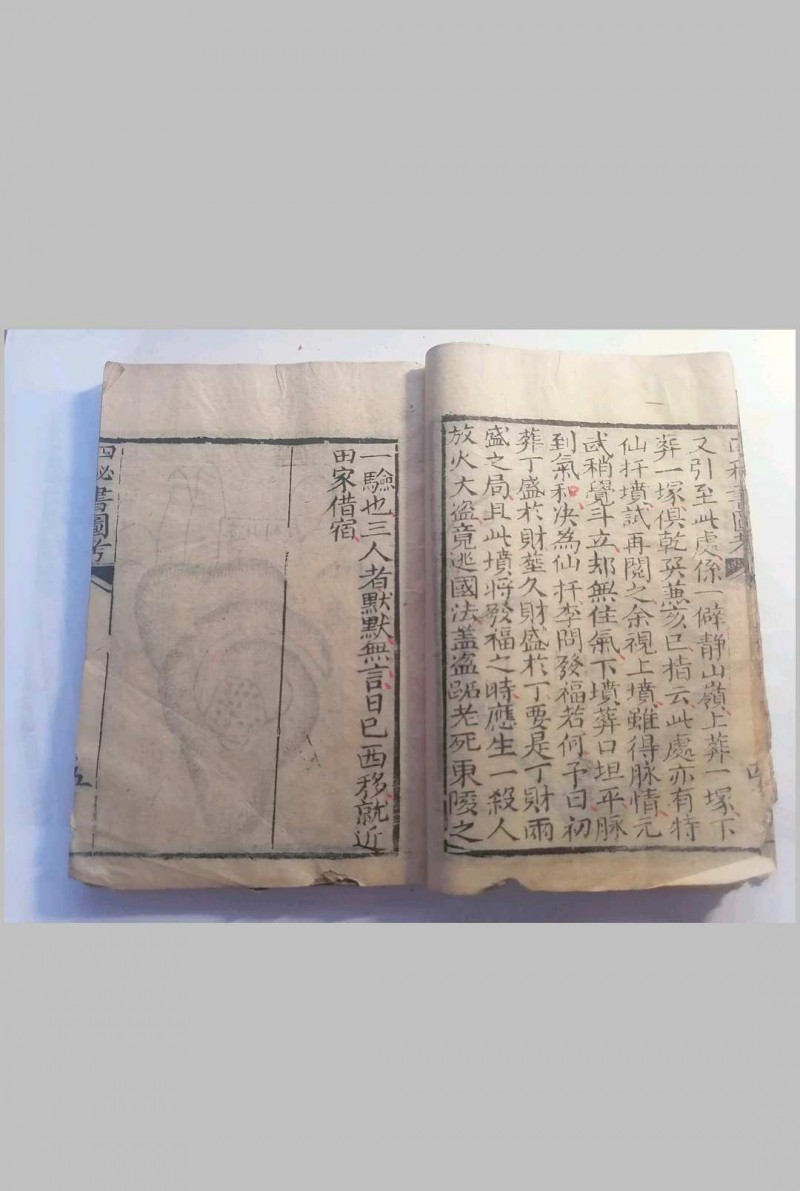 又引至此處係一僻静山嶺上葬一塚下
葬一塚俱乾巽兼亥巳指云此處亦有特
仙扦墳試再閱之余視上墳雖得脉情元
武稍覺斗立却無住氣下墳葬口坦平脉
到氣和决為仙扦李問發福若何予曰初
葬丁盛於財塟久財盛於丁要是丁財兩
盛之局且此墳將發福之時應生一殺人
放火大盗竟逃國法蓋盗跖老死東陵之
一驗也三人者默默無言日已西移就近
田家借宿
四秘書圖考
五